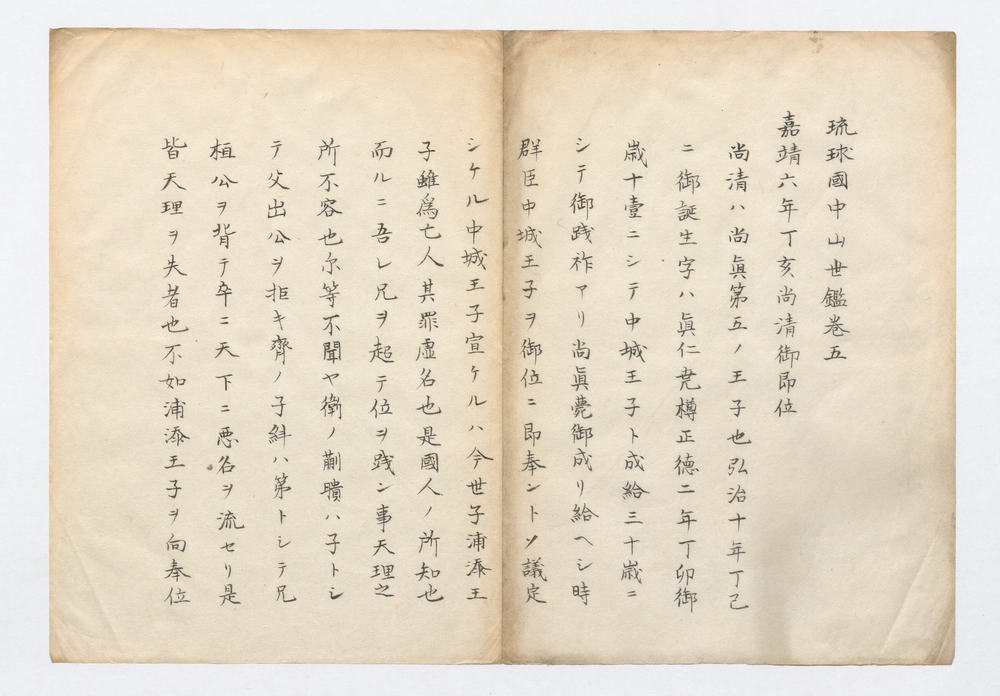 琉球國中山世鑑卷五
嘉靖六年丁亥尚清御即位
尚清ハ尚眞第五ノ王子也弘治十年丁巳
ニ御誕生字ハ眞仁尭樽正徳二年丁卯御
歳十壹ニシテ中城王子ト成給三十歳ニ
シテ御踐祚アリ尚眞薨御成リ給ヘシ時
群臣中城王子ヲ御位ニ即奉ントソ議定
シケル中城王子宣ケルハ今世子浦添王
子雖爲亡人其罪虚名也是國人ノ所知也
而ルニ吾レ兄ヲ超テ位ヲ踐ン事天理之
所不容也尓等不聞ヤ衛ノ蒯聵ハ子トシ
テ父出公ヲ拒キ齊ノ子糾ハ第トシテ兄
桓公ヲ背テ卒ニ天下ニ悪名ヲ流セリ是
皆天理ヲ失者也不如浦添王子ヲ向奉位